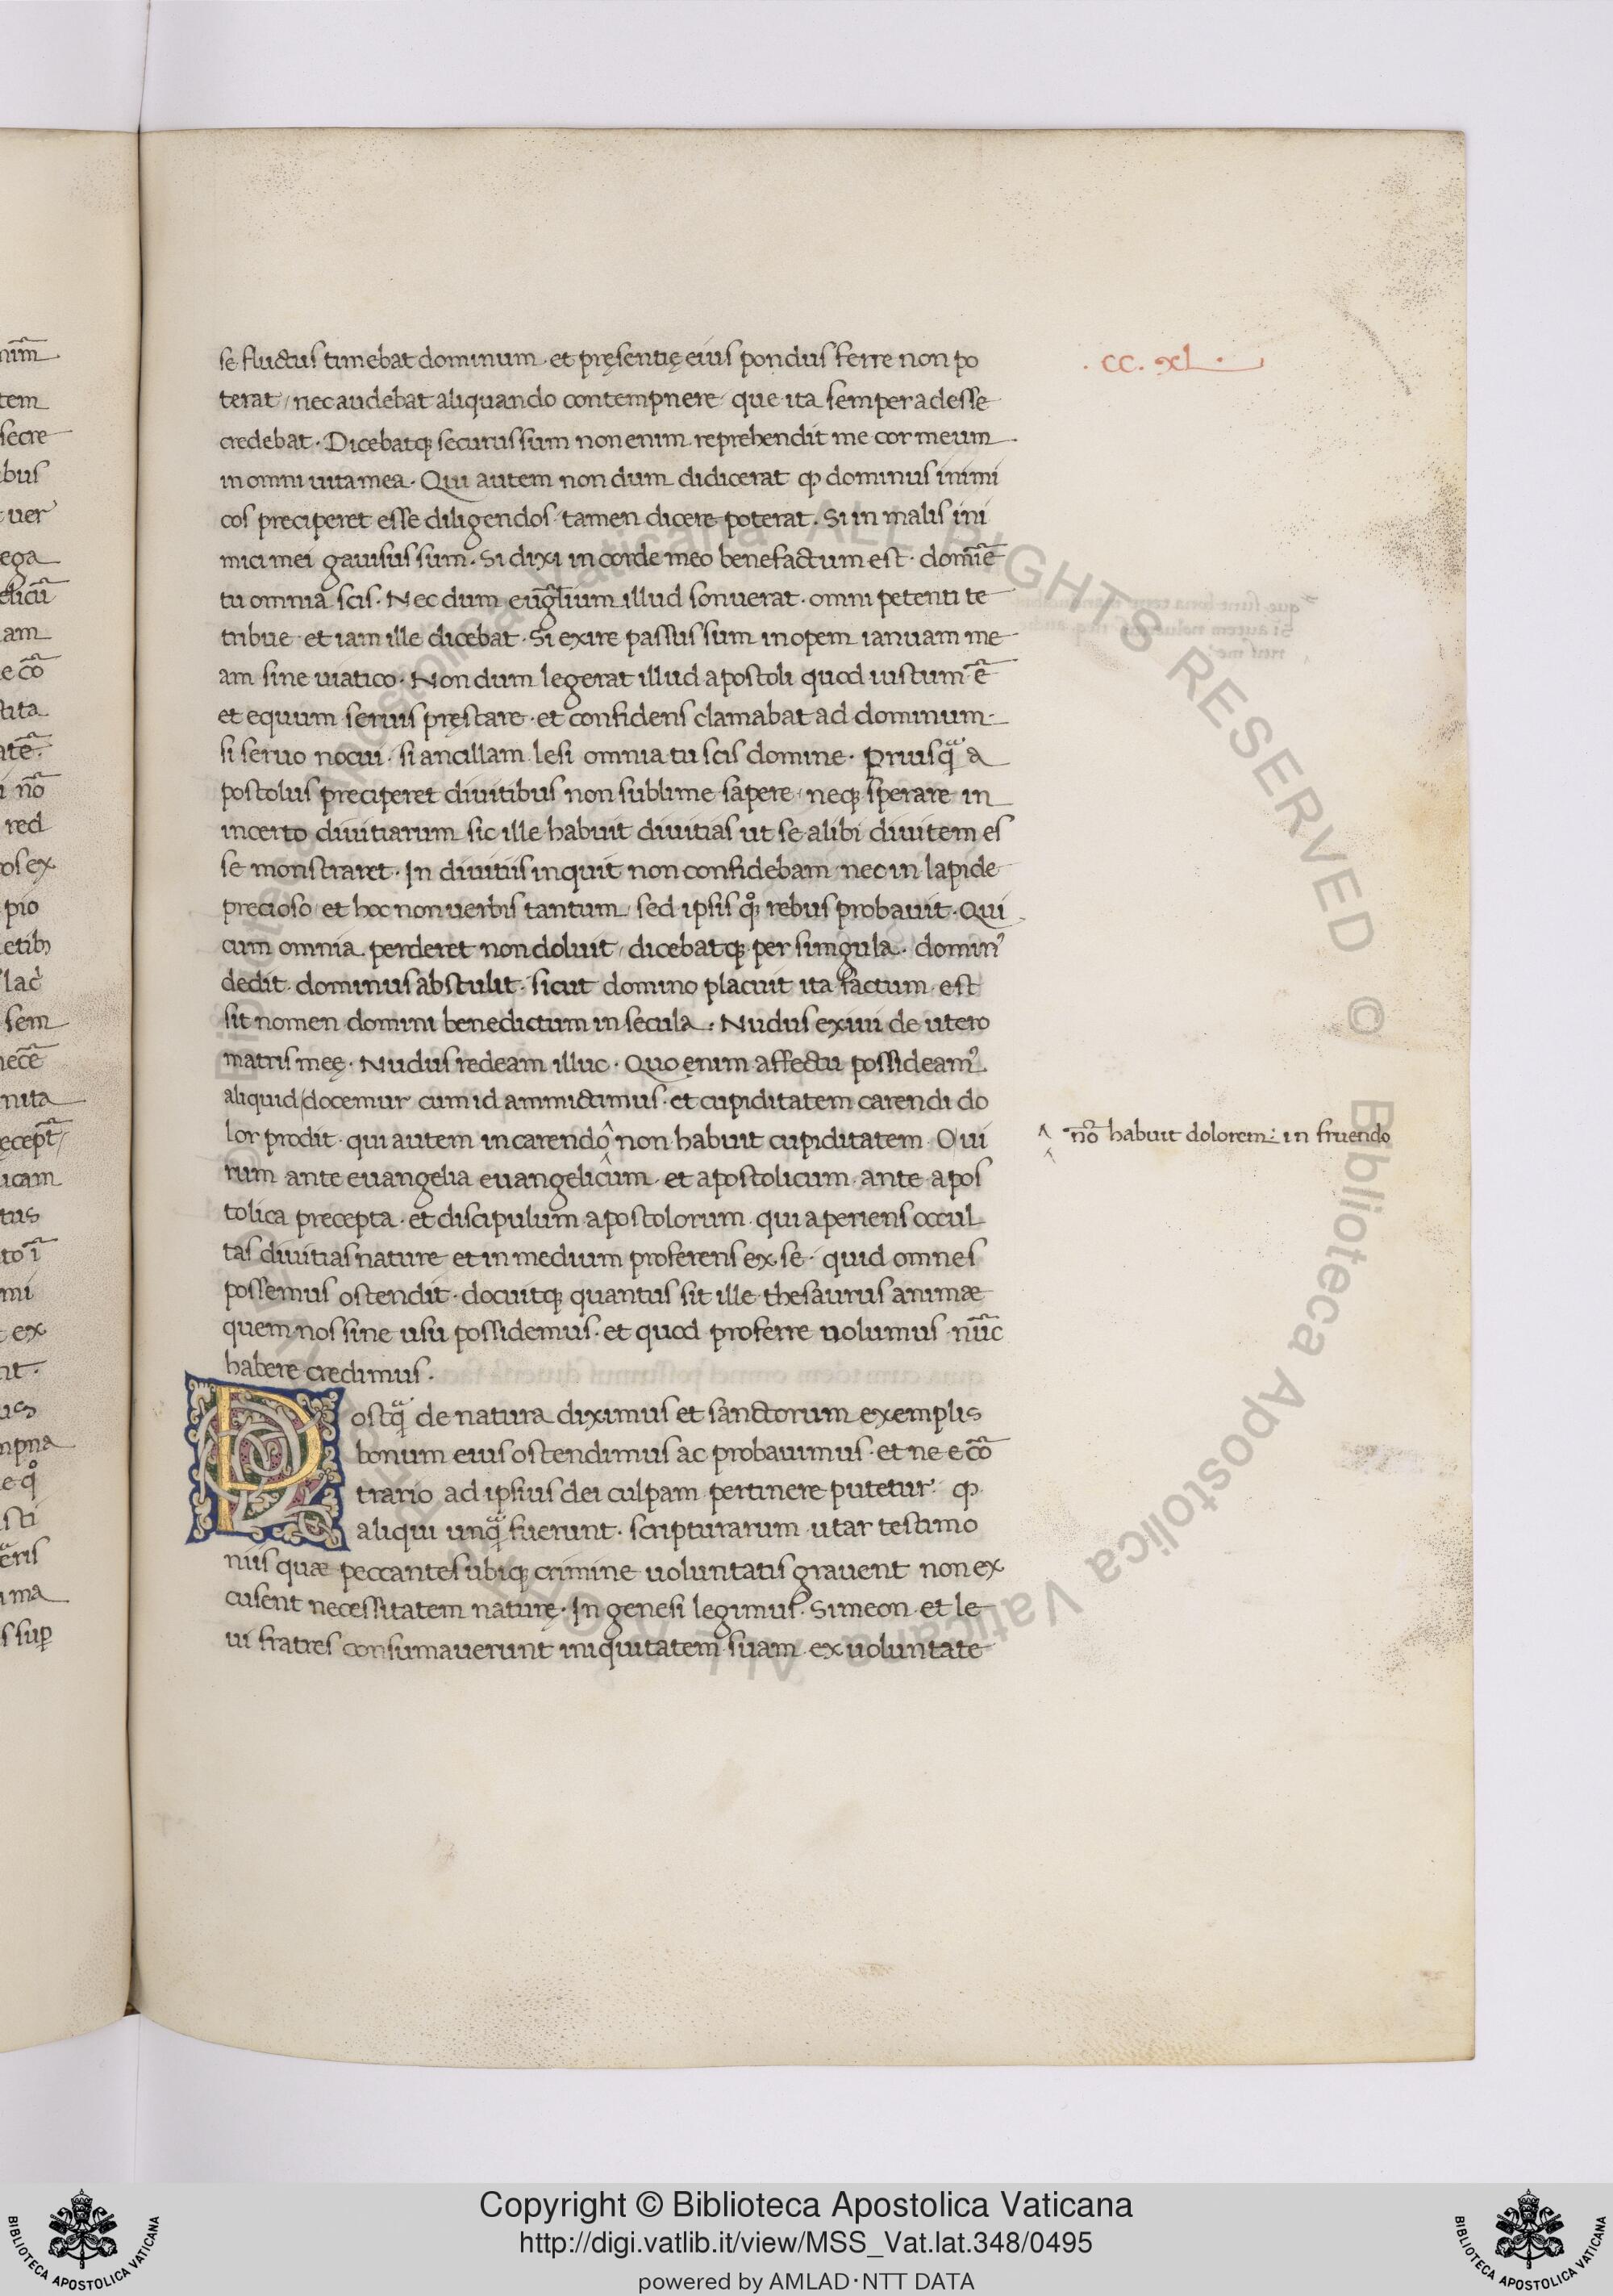 se fluctus timebat dominum · et pręsentię eius pondus ferre non po
terat, nec audebat aliquando contempnere que ita semper adesse
credebat · Dicebatq; securus sum non enim reprehendit me cor meum
in omni uita mea · Qui autem non dum didicerat ꝙ dominus inimi
cos preciperet esse diligendos · tamen dicere poterat . Si in malis ini
mici mei gauisus sum · Si dixi in corde meo bene factum est · domiē
tu omnia scis · Nec dum euglium illud sonuerat · omni petenti te
tribue · et iam ille dicebat · Si exire passus sum inopem ianuam me
am sine uiatico · Non dum legerat illud apostoli quod iustum ē
et equum seruis pręstare · et confidens clamabat ad dominum ·
si seruo nocui · si ancillam lesi omnia tu scis domine · Priusq̃ a
postolus preciperet diuitibus non sublime sapere, neq; sperare in
incerto diuitiarum sic ille habuit diuitias ut se alibi diuitem es
se monstraret · In diuitiis inquit non confidebam nec in lapide
precioso, et hoc non uerbis tantum, sed ipsis qͦ; rebus probauit · Qui
cum omnia perderet non doluit, dicebatq; per singula · domin᾽
dedit · dominus abstulit · sicut domino placuit ita factum est
sit nomen domini benedictum in secula · Nudus exiui de utero
matris meę · Nudus redeam illuc · Quo enim affectu possideam᾽
aliquid docemur cum id ammictimus · et cupiditatem carendi do
lor prodit · qui autem in carendo ^ non habuit cupiditatem · O ui
rum ante euangelia euangelicum · et apostolicum ante apos
tolica precepta · et discipulum apostolorum qui aperiens occul
tas diuitias nature et in medium proferens ex se · quid omnes
possemus ostendit · docuitq; quantus sit ille thesaurus animæ
quem nos sine usu possidemus · et quod proferre nolumus nūc
habere credimus ·
Postq̃ de natura diximus et sanctorum exemplis
bonum eius ostendimus ac probauimus · et ne e cō
trario ad ipsius dei culpam pertinere putetur · ꝙ
aliqui unq̃ fuerunt · scripturarum utar testimo
niis quæ peccantes ubiq; crimine uoluntatis grauent non ex
cusent necessitatem naturę · In genesi legimus · Simeon et le
ui fratres consumauerunt iniquitatem suam ex uoluntate
· cc · xl ·
nō habuit dolorem in fruendo
Copyright © Biblioteca Apostolica Vaticana
http://digi.vatlib.it/view/MSS_Vat.lat.348/0495
powered by AMLAD·NTT DATA
BIBLIOTECA APOSTOLICA VATICANA
BIBLIOTECA APOSTOLICA VATICANA